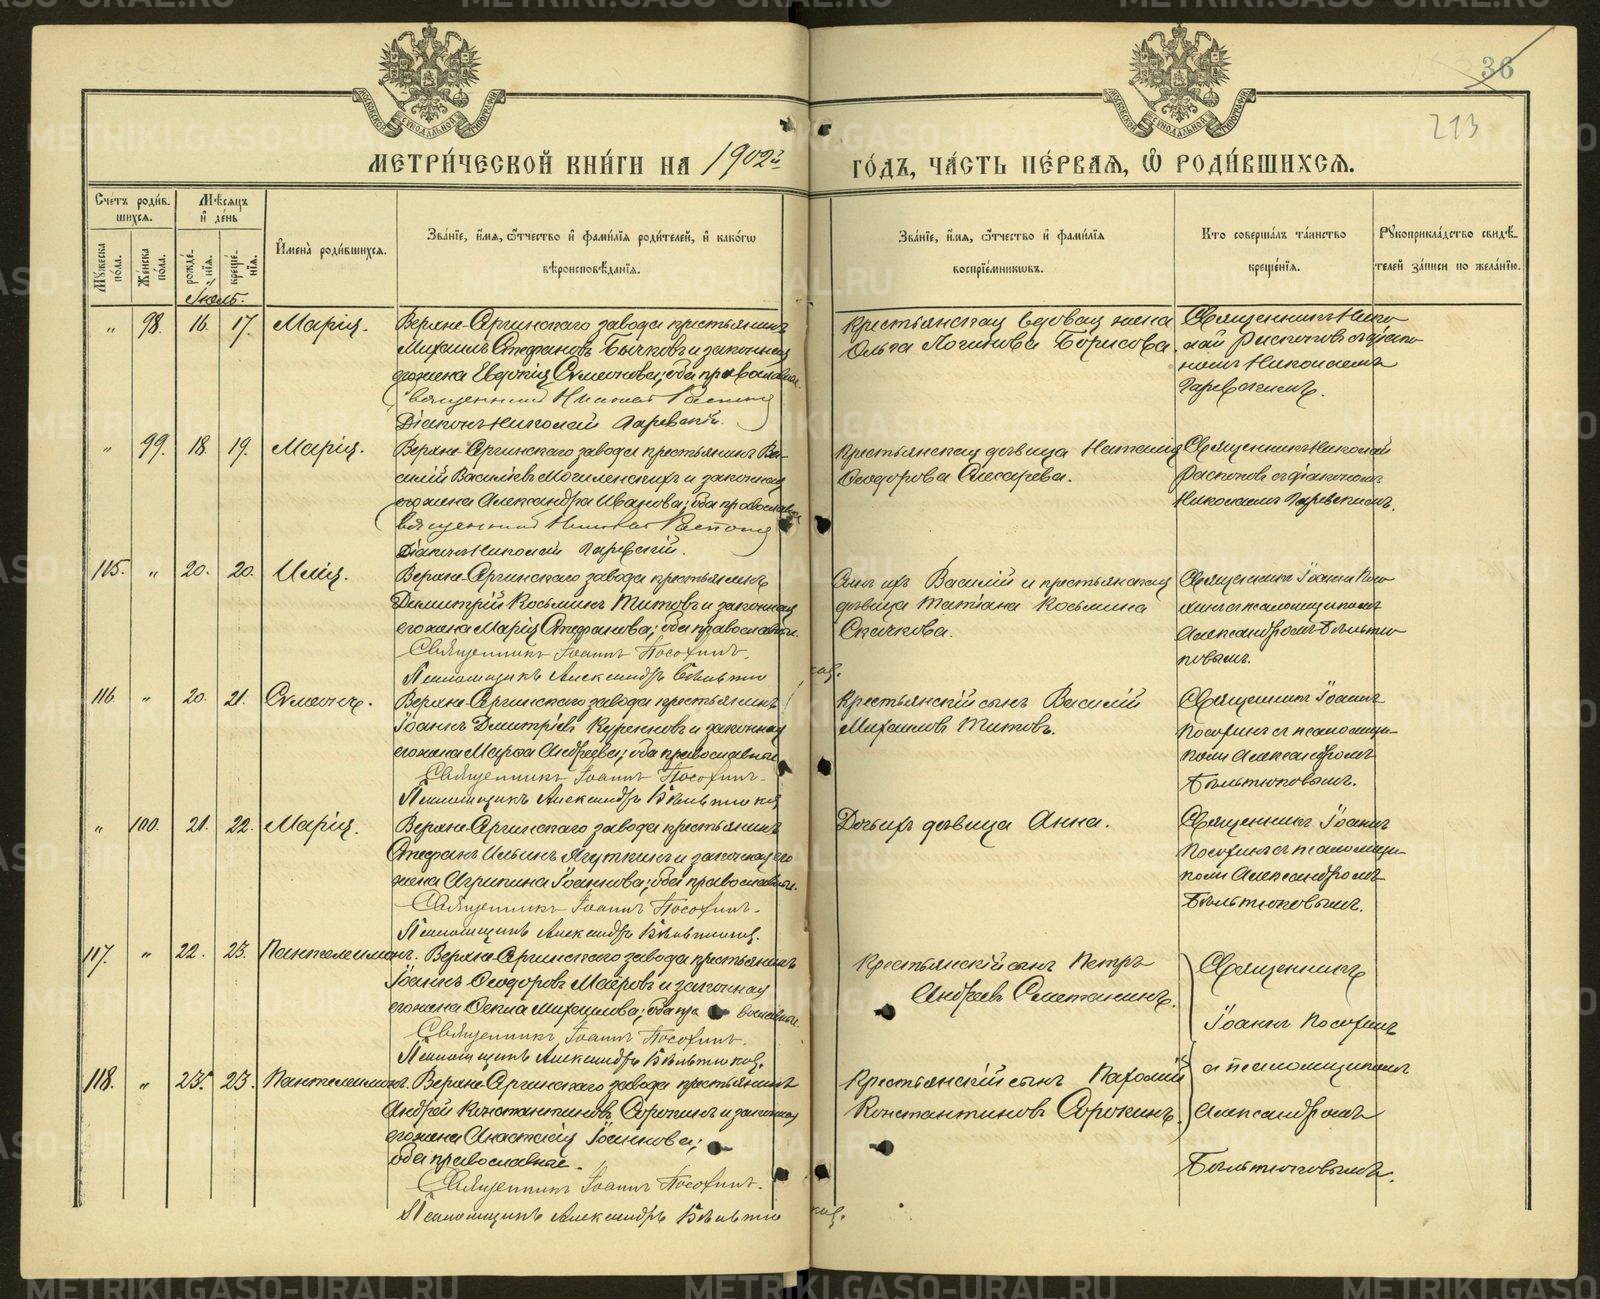 36
213
МЕТРИ́ЧЕСКОЙ КНИ́ГИ НА 1902й ГО́ДЪ, ЧА́СТЬ ПЕ́РВАЯ, Ѽ РОДИ́ВШИХСЯ.
Сче́тъ роди́вшихся.
Мѣ́сяцъ и҆ де́нь
Мꙋ́жеска по́ла.
Же́нска по́ла.
рожде́нїя.
креще́нїя.
И҆мена̀ роди́вшихся.
Зва́нїе, и҆́мя, ѻ҆́тчество и҆ фами́лїя роди́телей, и҆ како́гѡ вѣроисповѣ́данїя.
Зва́нїе, и҆́мя, ѻ҆́тчество и҆ фами́лїя воспрїе́мникѡвъ.
Кто̀ соверша́лъ та́инство креще́нїя.
Рꙋкоприкла́дство свидѣ́телей за́писи по жела́нїю.
Іюль.
" 98. 16. 17. Марія.
Верхне-Сергинскаго завода крестьянинъ
Михаилъ Стефановъ Бычковъ и законная
его жена Евдокія Сѵмеонова; оба православн.
Священникъ Николай
Діаконъ Николай
Крестьянская вдовая жена
Ольга Логинова Борисова.
Священникъ Николай
съ діакономъ Николаемъ
" 99. 18. 19. Марія.
Верхне-Сергинскаго завода крестьянинъ Василій
Васильевъ Могиленскихъ и законная
его жена Александра Иванова; оба православн
Священникъ Николай
Діаконъ Николай
Крестьянская дѣвица Наталія
Ѳеодорова Слесарева.
Священникъ Николай
съ діакономъ
Николаемъ
115. " 20. 20. Илія.
Верхне-Сергинскаго завода крестьянинъ
Димитрій Косьминъ Титовъ и законная
его жена Марія Стефанова; оба православные.
Священникъ Іоаннъ Посохинъ.
Псаломщикъ Александръ Бѣльтюковъ.
Сынъ ихъ Василій и крестьянская
дѣвица Татіана Косьмина
Скачкова.
Священникъ Іоаннъ Посохинъ
съ псаломщикомъ
Александромъ Бѣльтюковымъ.
116. " 20. 21. Сѵмеонъ.
Верхне-Сергинскаго завода крестьянинъ
Іоаннъ Димитріевъ Куренновъ и законная
его жена Марѳа Андреева; оба православные
Священникъ Іоаннъ Посохинъ.
Псаломщикъ Александръ Бѣльтюковъ
Крестьянскій сынъ Василій
Михаиловъ Титовъ.
Священникъ Іоаннъ
Посохинъ съ псаломщикомъ
Александромъ
Бѣльтюковымъ.
" 100. 21. 22. Марія.
Верхне-Сергинскаго завода крестьянинъ
Стефанъ Ильинъ Ягуткинъ и законная его
жена Агрипина Іоаннова; оба православные.
Священникъ Іоаннъ Посохинъ.
Псаломщикъ Александръ Бѣльтюковъ.
Дочь ихъ дѣвица Анна.
Священникъ Іоаннъ
Посохинъ съ псаломщикомъ
Александромъ
Бѣльтюковымъ.
117. " 22. 23. Пантелеимонъ.
Верхне-Сергинскаго завода крестьянинъ
Іоаннъ Ѳеодоровъ Маёровъ и законная
его жена Ѳекла Михаилова; оба православные.
Священникъ Іоаннъ Посохинъ.
Псаломщикъ Александръ Бѣльтюковъ.
Крестьянскій сынъ Петръ
Андреевъ Сметанинъ.
Священникъ
Іоаннъ Посохинъ
118. " 23. 23. Пантелеимонъ.
Верхне-Сергинскаго завода крестьянинъ
Андрей Константиновъ Сорокинъ и законная
его жена Анастасія Іоаннова;
оба православные.
Священникъ Іоаннъ Посохинъ.
Псаломщикъ Александръ Бѣльтюковъ.
Крестьянскій сынъ Пахомій
Константиновъ Сорокинъ.
съ псаломщикомъ
Александромъ
Бѣльтюковымъ.
METRIKI.GASO-URAL.RU